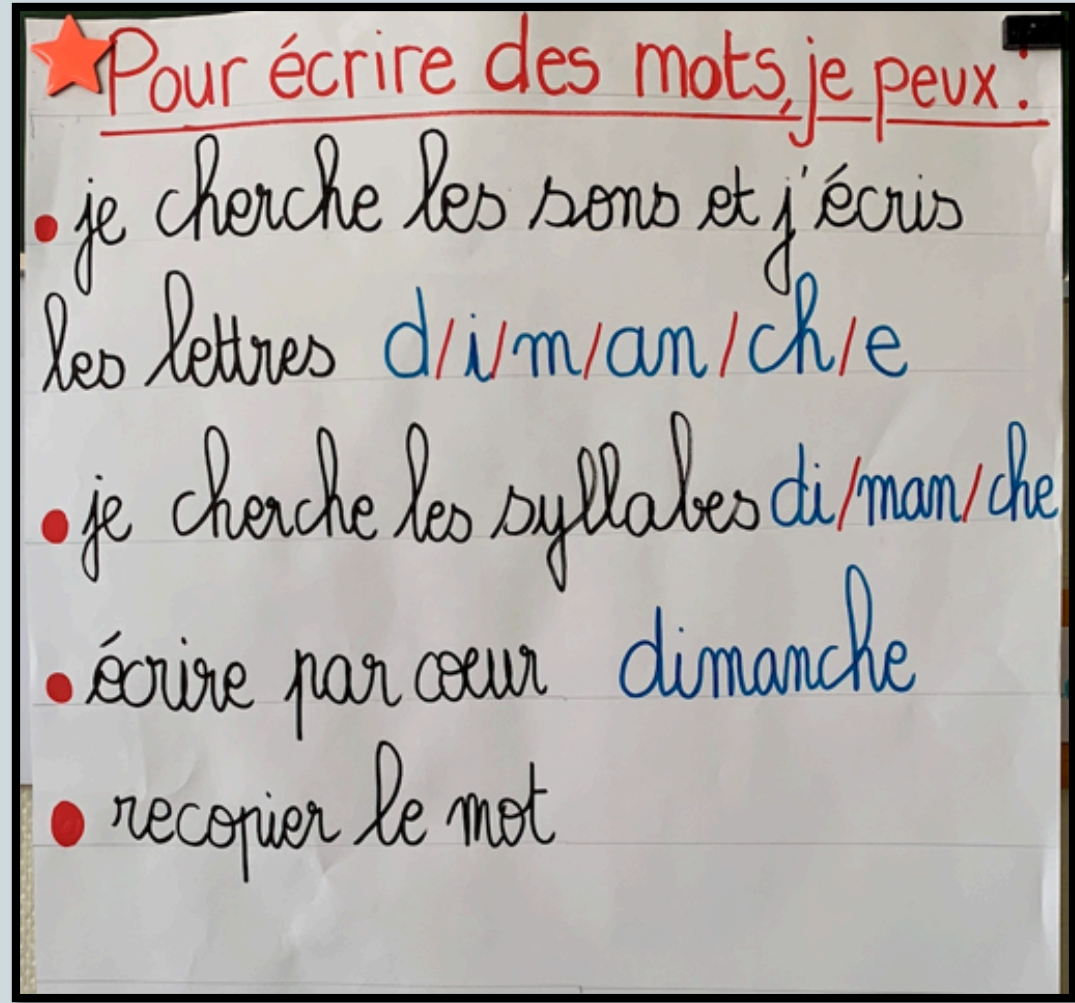 Pour écrire des mots, je peux :
• je cherche les sons et j'écris
les lettres d/i/m/an/ch/e
• je cherche les syllabes di/man/che
• écrire par cœur dimanche
• recopier le mot